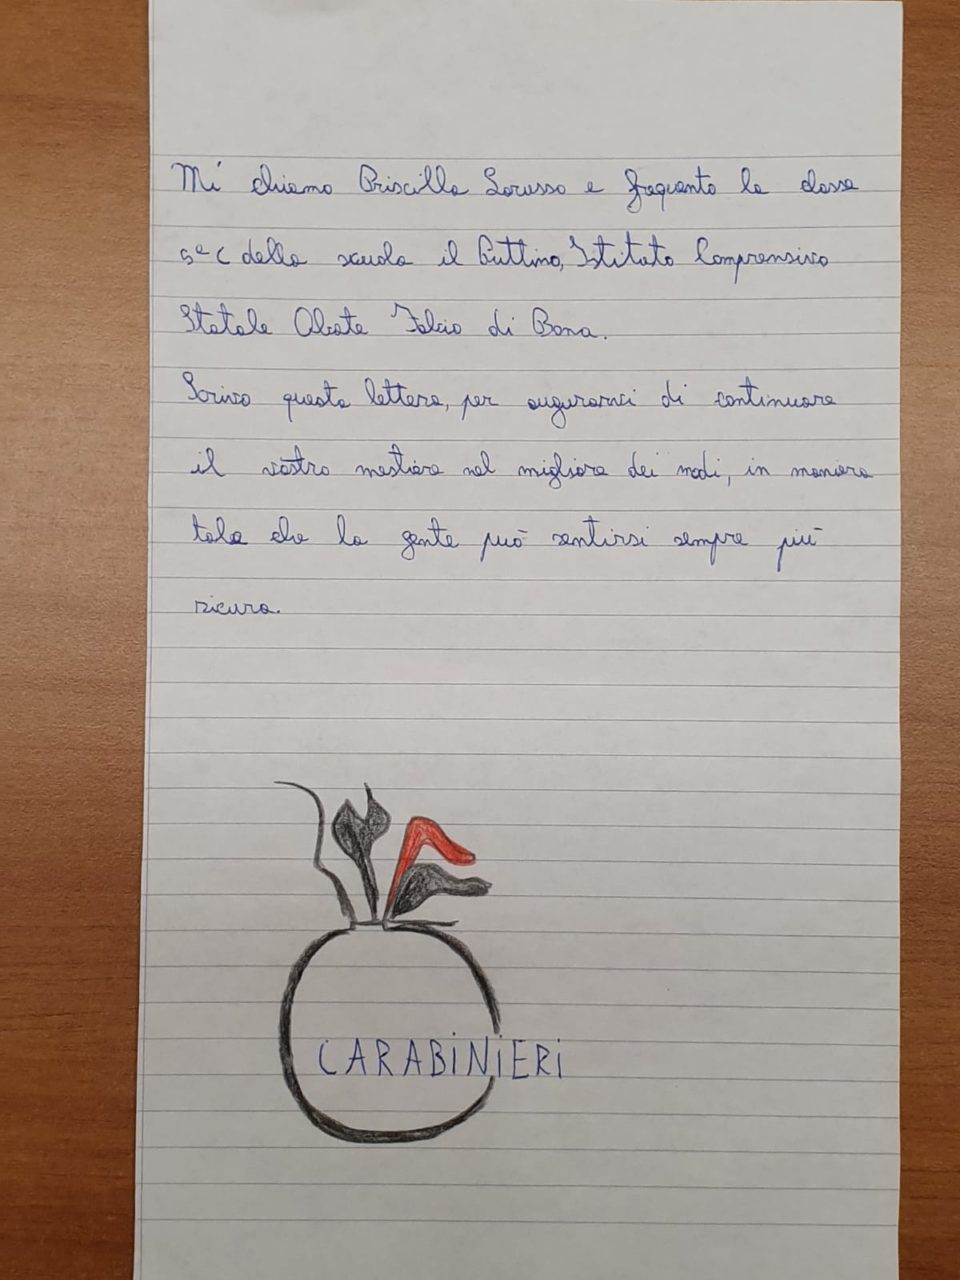 Mi chiamo Priscilla Lorusso e frequento la classe
5ª C della scuola il Puttino, Istituto Comprensivo
Statale Abate Fabio di Bona.
Scrivo questa lettera, per augurarvi di continuare
il vostro mestiere nel migliore dei modi, in maniera
tale che la gente può sentirsi sempre più
sicura.
CARABINIERI